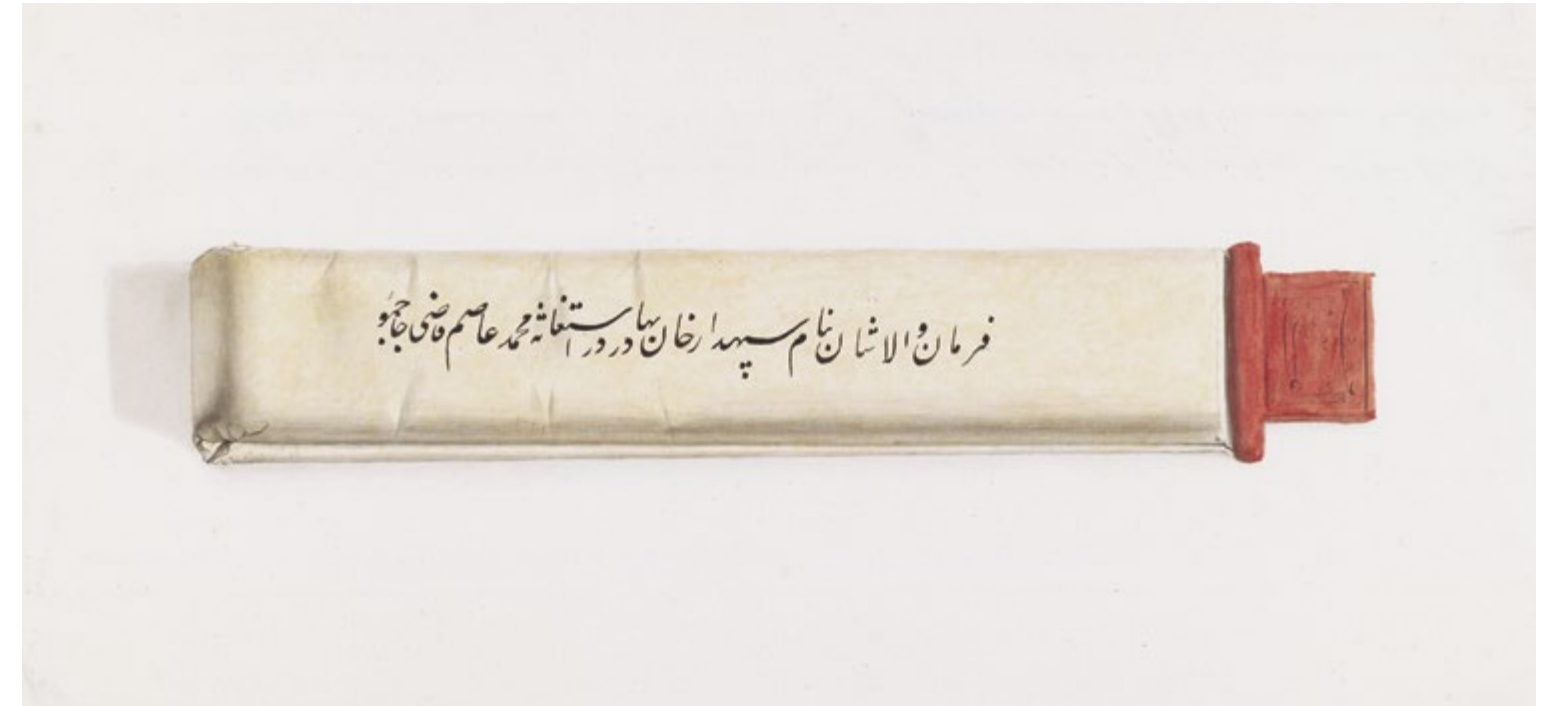 فرمان والا شان بنام سپهدار خان بهادر در استغاثه محمد عاصم قاضی جاجمو